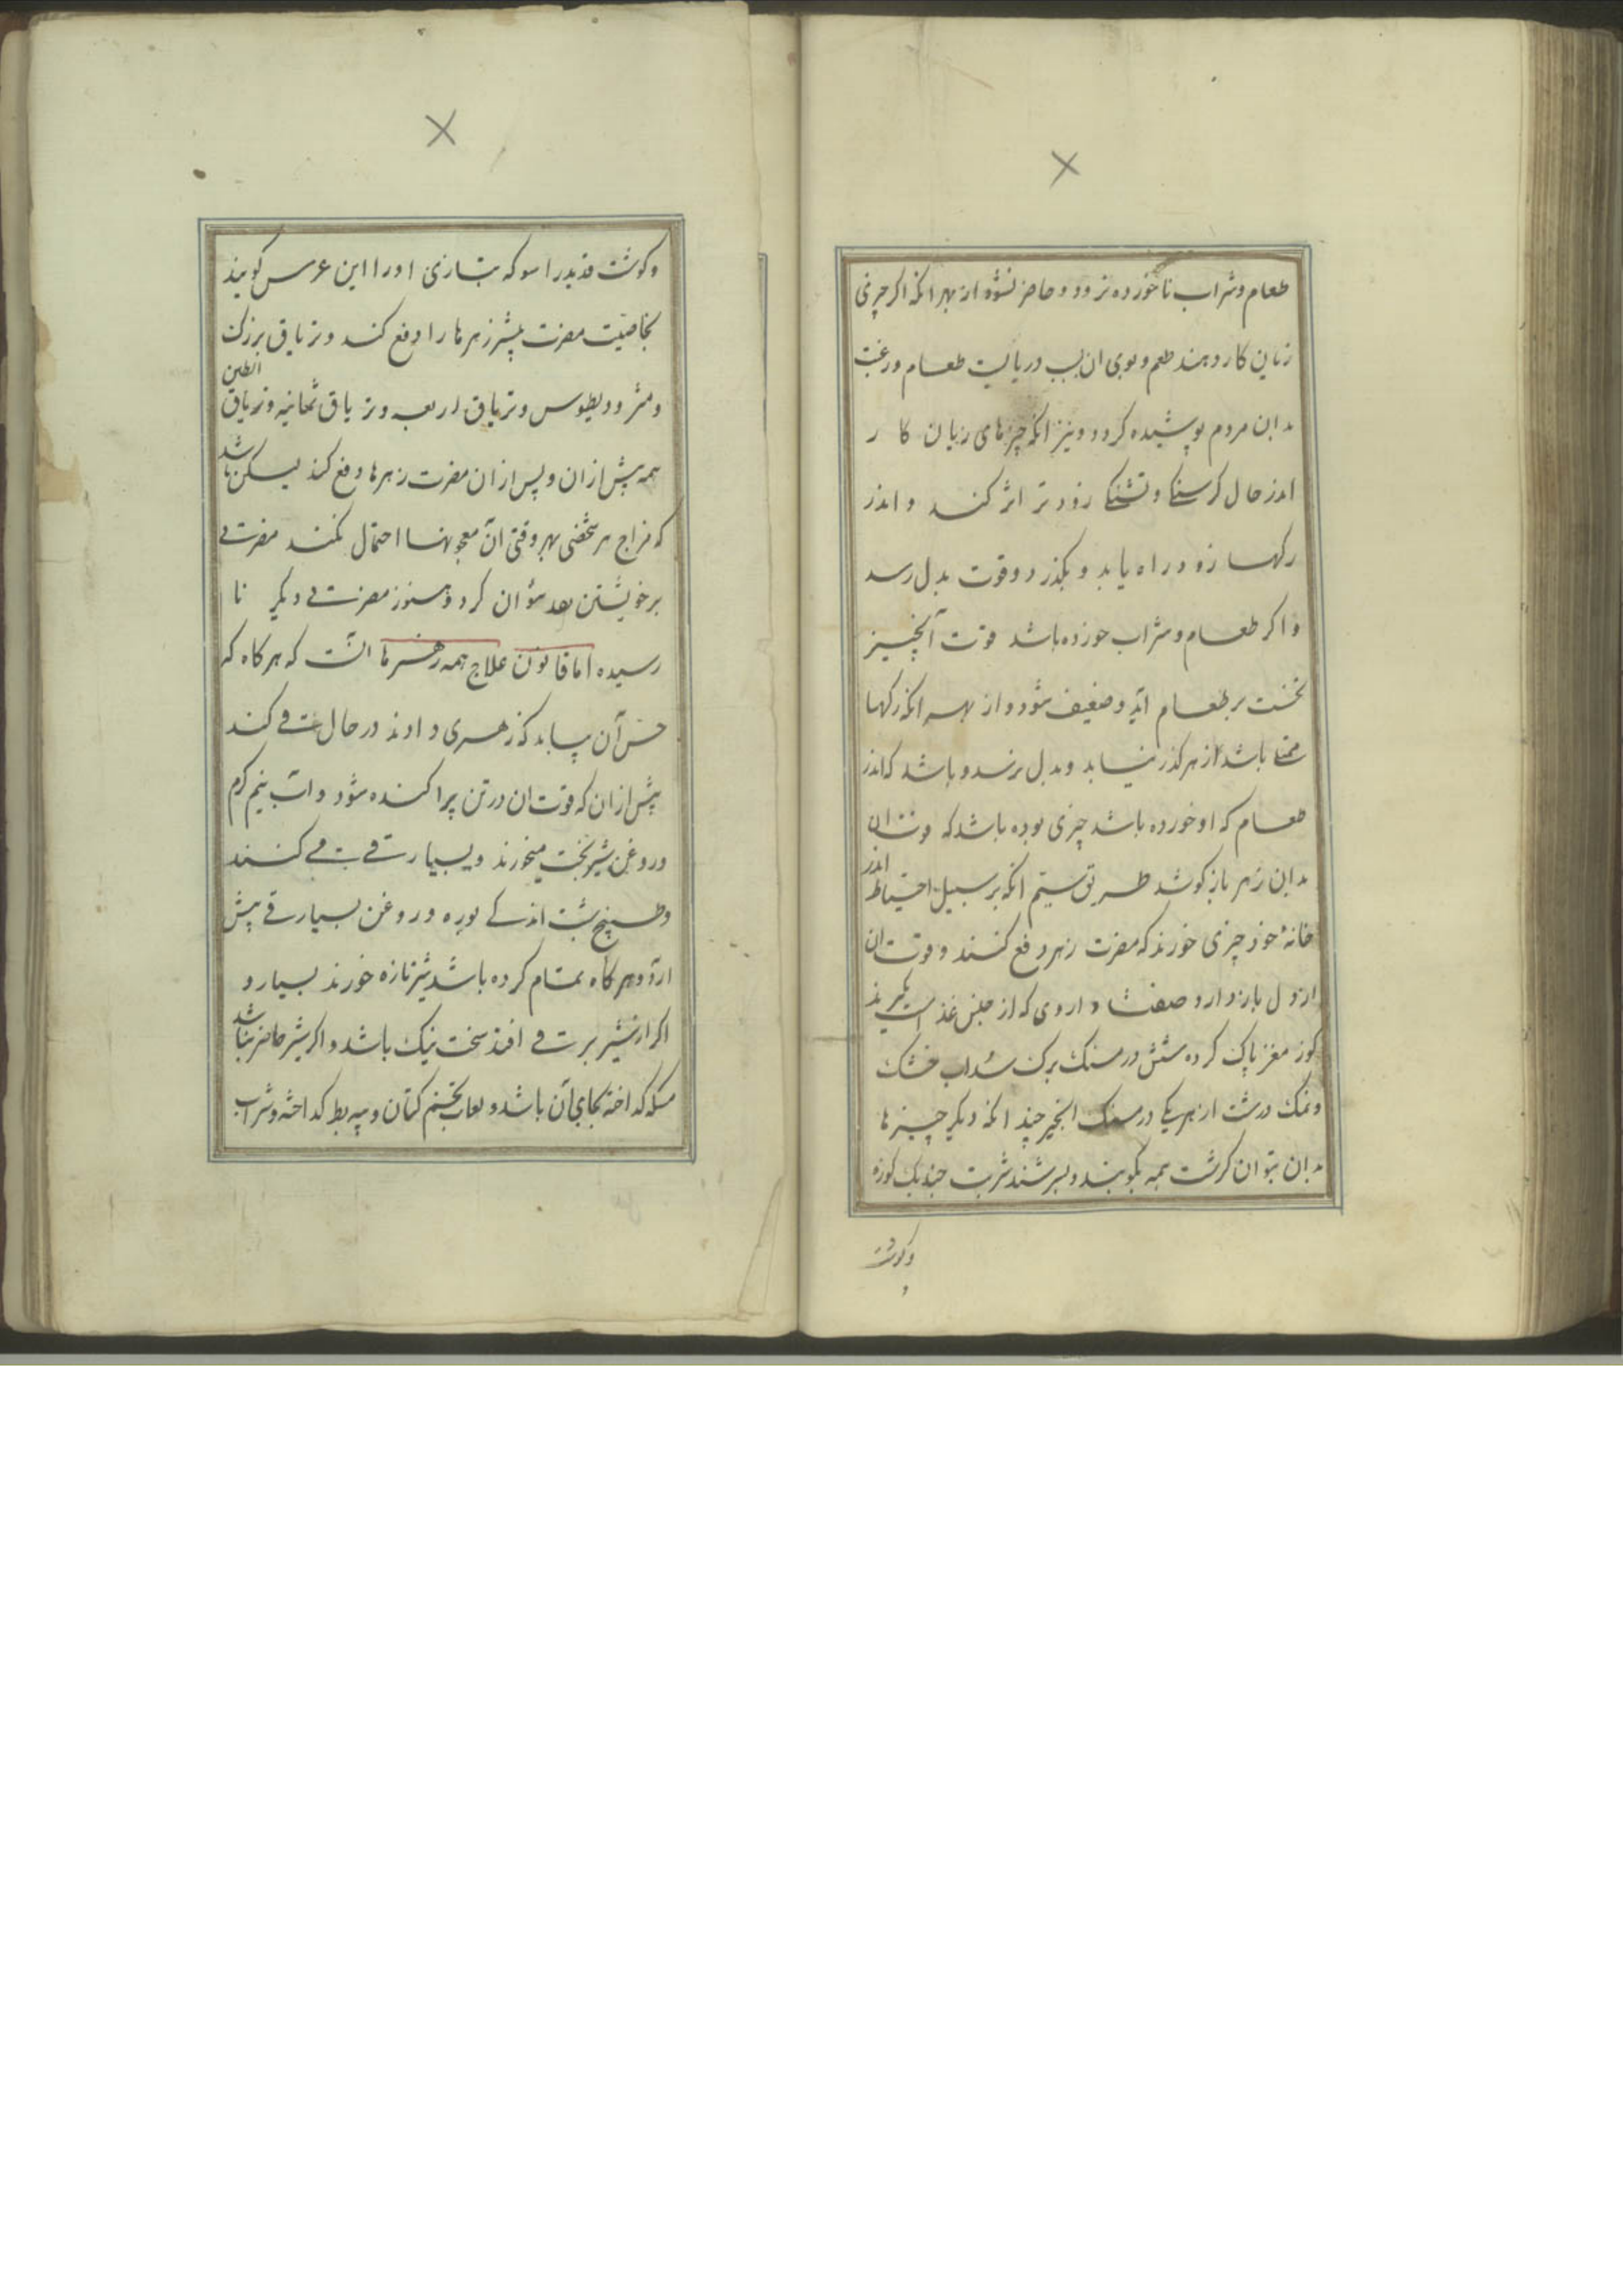 طعام و شراب ناخورده نرود و حاضر نشود از بهر انکه اکر چیزی
زیان کار دهند طعم و بوی ان بسبب دربایست طعام و رغبت
بدان مردم پوشیده کردد و نیز انکه چیزهای زیان کا ر
اندر حال کرسنکی و تشنکی زودتر اثر کند و اندر
رکها زود راه یابد و بکذرد و قوت بدل رسد
و اکر طعام و شراب خورده باشد قوت آنچیز
نخست بر طعام اید و ضعیف شود و از بهر انکه رکها
ممتلی باشد از هر کذر نیابد و بدل نرسد و باشد که اندر
طعام که او خورده باشد چیزی بوده باشد که قوت ان
بدان زهر باز کوشد طریق سیم انکه بر سبیل احتیاط اندر
خانهٔ خود چیزی خورند که مضرت زهر دفع کنند و قوت ان
از دل باز دارد صفت داروی که از جنس غذاست بکیرند
کوز مغز پاک کرده شش درمسنک برک سداب خشک
و نمک درشت از هر یکی درمسنک انجیر چند انکه دیکر چیزها
بدان بتوان سرشت همه بکوبند و بسرشند شربت چند یک کوزه
وکوشت
وکوشت قدید راسو که بتازی اورا ابن عرس کویند
بخاصیت مضرت بیشتر زهرها را دفع کند و تریاق بزرک
و مثرودیطوس و تریاق اربعه و تریاق ثمانیه و تریاق الطین
همه پیش از ان و پس از ان مضرت زهرها دفع کند لیکن باشد
که مزاج هر شخصی بهر وقتی ان معجونها احتمال نکند مضرتی
بر خویشتن بعد نتوان کرد و هنوز مضرتی دیکر نا
رسیده اما قانون علاج همه زهرها انست که هرکاه که
حس آن بیابد که زهری دادند در حال قی کند
پیش از ان که قوت ان در تن پراکنده شود و اب نیم کرم
و روغن شیربخت میخورند و بسیار قی می کنند
و طبیخ شبت اندکی بوره و روغن بسیار قی پیش
ارد و هرکاه تمام کرده باشد شیر تازه خورند بسیار و
اکر از شیر برت قی افتد سخت نیک باشد و اکر شیر حاضر نباشد
مسکه کداخته بجای آن باشد و لعاب تخم کتان و پیه بط کداخته و شراب